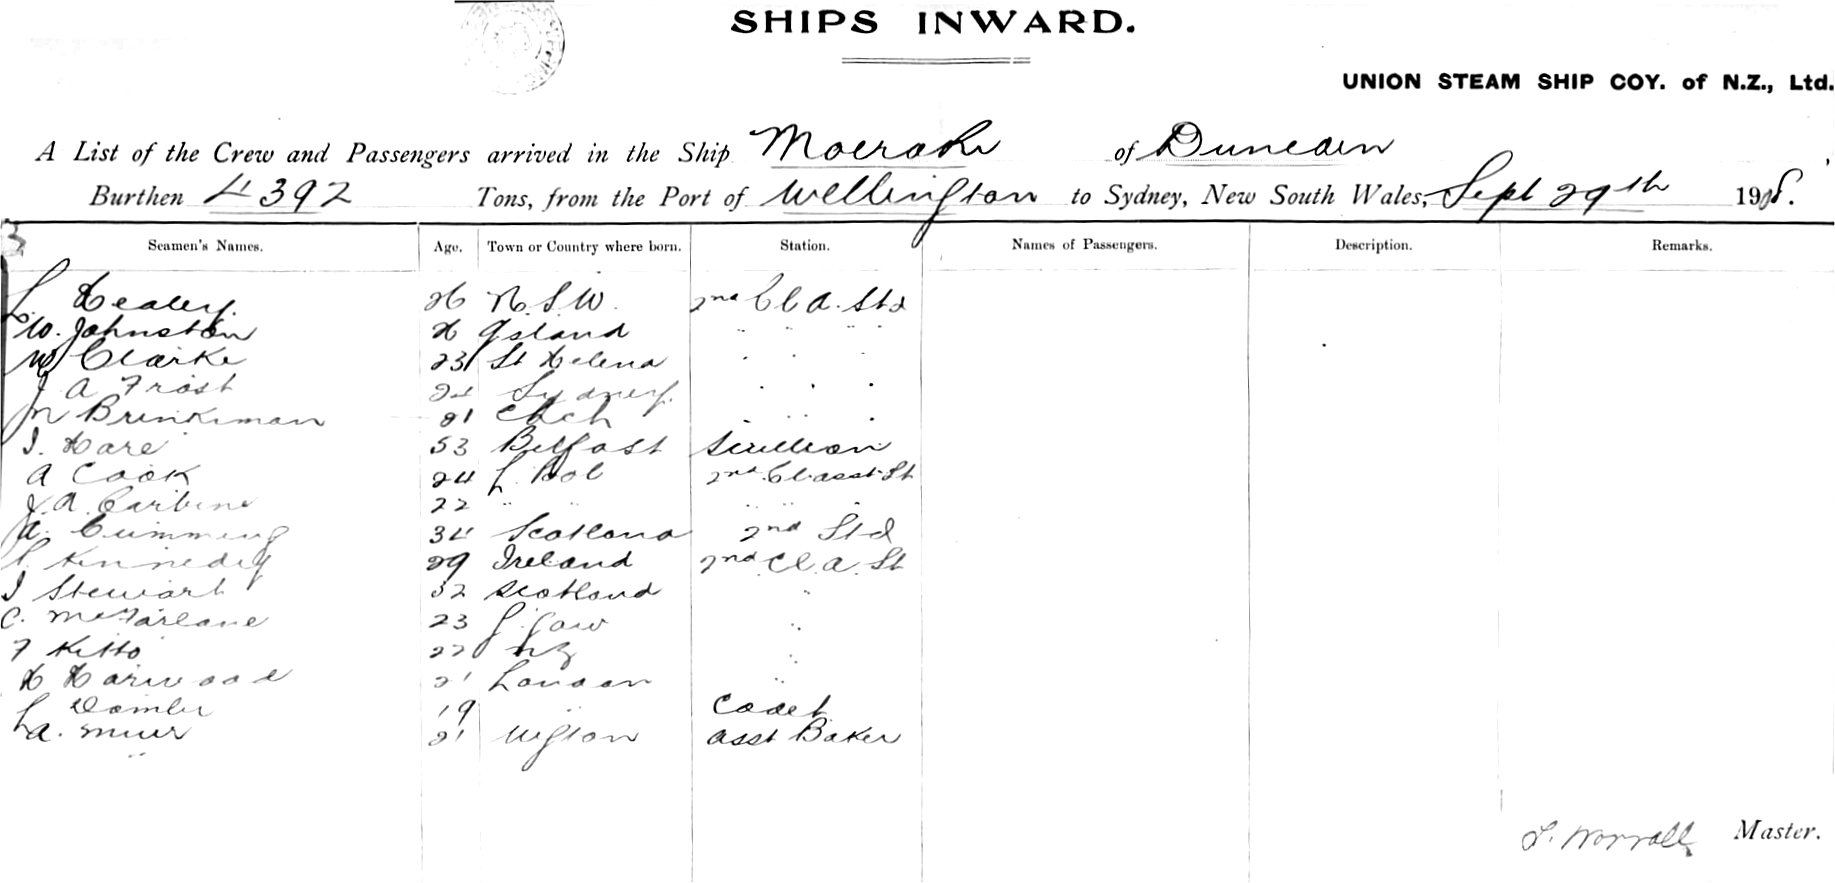 SHIPS INWARD.
UNION STEAM SHIP COY. of N.Z., Ltd.
A List of the Crew and Passengers arrived in the Ship Moeraki of Dunedin
Burthen 4392 Tons, from the Port of Wellington to Sydney, New South Wales, Sept 29th 1908.
Seamen's Names. Age. Town or Country where born. Station. Names of Passengers. Description. Remarks.
L. Healey. 26 N.S.W. 2nd Cl A. Std
W. Johnston 26 Qsland " " "
W Clarke 23 St Helena " " "
J A Frost 24 Sydney. " " "
M Brinkman 21 Chch " " "
J. Hare 53 Belfast Scullion
A Cook 24 L. Pool 2nd Cl asst St
J. A. Carbine 22 " " " " "
A. Cumming 34 Scotland 2nd Std
L. Kennedy 29 Ireland 2nd Cl. A. St
J Stewart 32 Scotland "
C. McFarlane 23 G. gow "
F Kitto 22 NZ "
H Harwood 21 London "
L 19 " Cadet
A. Muir 21 Wgton asst Baker
Worrall Master.